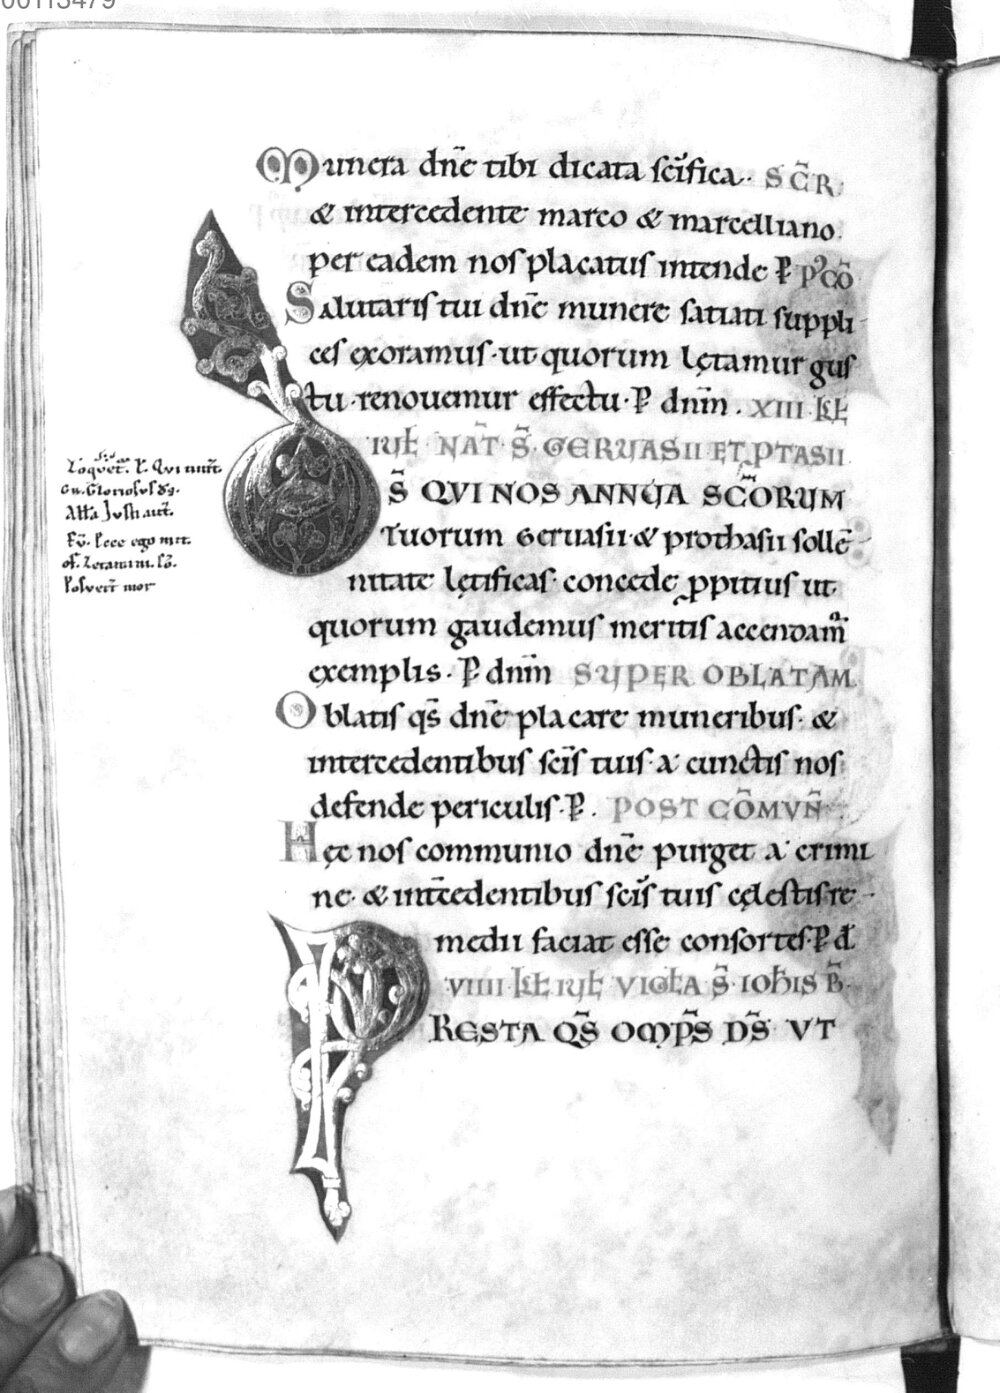 00113479
Munera dn̄e tibi dicata sc̄ifica. SCR̄
& intercedente marco & marcelliano
per eadem nos placatus intende P̱ P'CŌ
Salutaris tui dn̄e munere satiati suppli-
ces exoramus. ut quorum lętamur gus
tu renouemur effectu. P̱ dn̄m. XIII KƗ
IUƗ NAT̄ S̄ GERUASII ET PTASII
D̄S QVI NOS ANNUA SC̄ORUM
Tuorum Geruasii & prothasii sollē-
nitate lętificas. concede ꝓpitius ut
quorum gaudemus meritis accendam̄
exemplis. P̱ dn̄m SUPER OBLATAM
Oblatis qs̄ dn̄e placare muneribus. &
intercedentibus sc̄is tuis a cunctis nos
defende periculis. P̱. POST CŌMVÑ
Hęc nos communio dn̄e purget a crimi
ne. & int̄cedentibus sc̄is tuis cęlestis re-
medii faciat esse consortes. P̱ d̄
VIIII KƗ IUƗ VIGƗA S̄ IOH̄IS B̄
PRESTA QS̄ OMPS̄ DS̄ VT
Gr. Gloriosus ds.
Alla Justi aut.
Ev. Ecce ego mit.